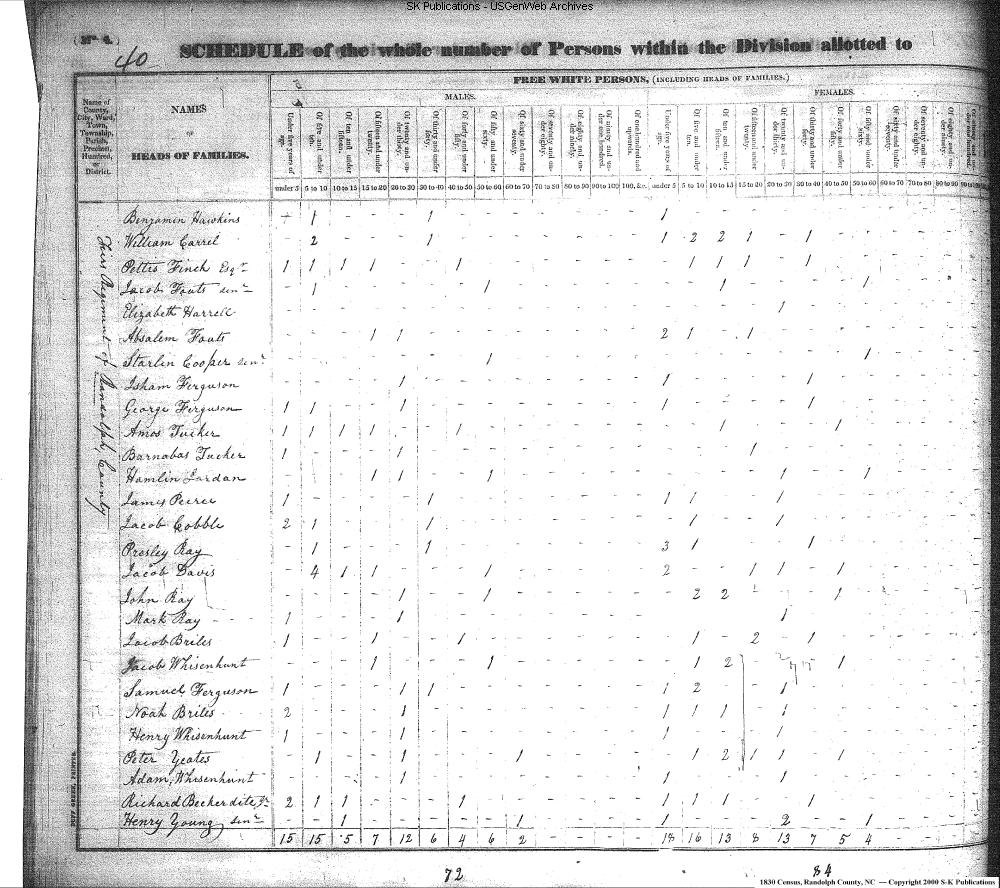 SK Publications - USGenWeb Archives
(No 4.)
40
SCHEDULE of the whole number of Persons within the Division allotted to
FREE WHITE PERSONS, (INCLUDING HEADS OF FAMILIES.)
MALES. FEMALES.
Name of County, City, Ward, Town, Township, Parish, Precinct, Hundred, or District.
NAMES
OF
HEADS OF FAMILIES.
Under five years of age. Of five and under ten. Of ten and under fifteen. Of fifteen and under twenty. Of twenty and under thirty. Of thirty and under forty. Of forty and under fifty. Of fifty and under sixty. Of sixty and under seventy. Of seventy and under eighty. Of eighty and under ninety. Of ninety and under one hundred. Of one hundred and upwards. Under five years of age. Of five and under ten. Of ten and under fifteen. Of fifteen and under twenty. Of twenty and under thirty. Of thirty and under forty. Of forty and under fifty. Of fifty and under sixty. Of sixty and under seventy. Of seventy and under eighty. Of eighty and under ninety.
under 5 5 to 10 10 to 15 15 to 20 20 to 30 30 to 40 40 to 50 50 to 60 60 to 70 70 to 80 80 to 90 90 to 100 100, &c. under 5 5 to 10 10 to 15 15 to 20 20 to 30 30 to 40 40 to 50 50 to 60 60 to 70 70 to 80 80 to 90
Regiment of Randolph County
Benjamin Hawkins 1 1 1
William Carrel 2 1 1 2 2 1 1
Pettis Finch Esqr 1 1 1 1 1 1 1 1 1
Jacob Fouts senr 1 1 1 1
Elizabeth Harrell 1
Absalem Fouts 1 1 2 1 1
Starlin Cooper senr 1 1
Isham Ferguson 1 1 1
George Ferguson 1 1 1 1 1
Amos Tucker 1 1 1 1 1 1 1
Barnabas Tucker 1 1 1
Hamlin Jordan 1 1 1 1 1
James Peirce 1 1 1 1 1
Jacob Cobble 2 1 1 1 1
Presley Ray 1 1 3 1 1
Jacob Davis 4 1 1 1 2 1 1 1
John Ray 1 1 2 2 1 1
Mark Ray 1 1 1
Jacob Briles 1 1 1 1 2 1
Jacob Whisenhunt 1 1 1 2 1
Samuel Ferguson 1 1 1 1 2 1
Noah Briles 2 1 1 1 1 1
Henry Whisenhunt 1 1 1 1
Peter Yeates 1 1 1 1 2 1 1 1
Adam Whisenhunt 1 1 1
Richard Beckerdite, Jr 2 1 1 1 1 1 1 1
Henry Young senr 1 1 1 2 1
15 15 5 7 12 6 4 6 2 18 16 13 8 13 7 5 4
DUFF GREEN, PRINTER.
72 84
1830 Census, Randolph County, NC — Copyright 2000 S-K Publications